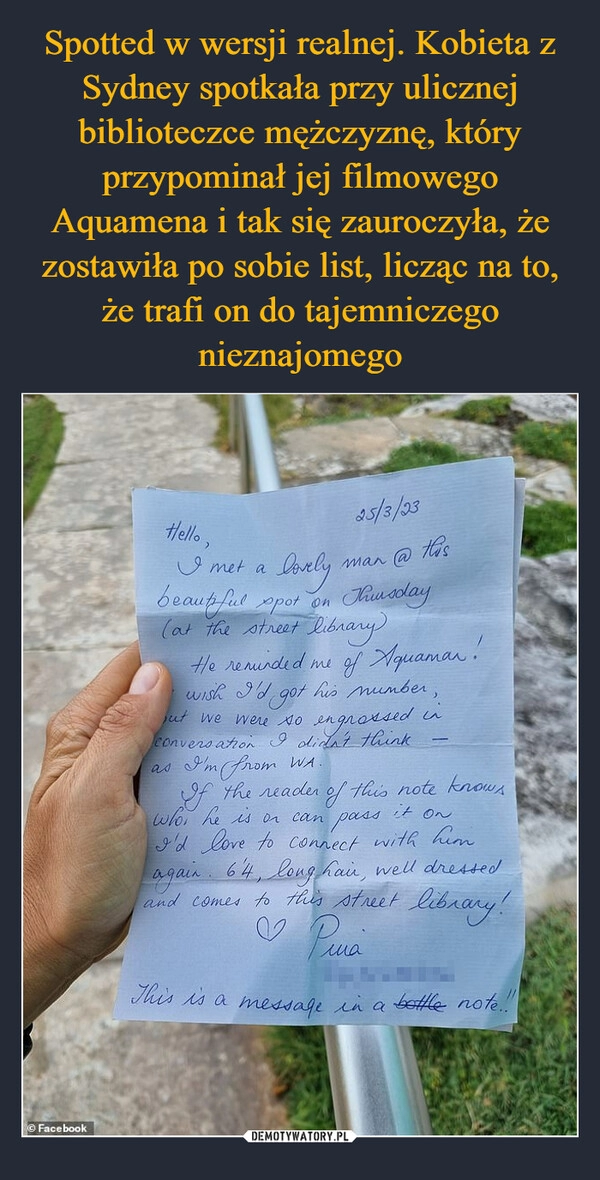 Spotted w wersji realnej. Kobieta z
Sydney spotkała przy ulicznej
biblioteczce mężczyznę, który
przypominał jej filmowego
Aquamena i tak się zauroczyła, że
zostawiła po sobie list, licząc na to,
że trafi on do tajemniczego
nieznajomego
25/3/23
Hello,
I met a lovely man @ this
beautiful spot on Thursday
(at the street library)
He reminded me of Aquaman!
wish I'd got his number,
but we were so engrossed in
conversation I didn't think —
as I'm from WA.
If the reader of this note knows
who he is or can pass it on
I'd love to connect with him
again. 6'4, long hair, well dressed
and comes to this street library!
♡ Pina
This is a message in a bottle note..!!
© Facebook
DEMOTYWATORY.PL